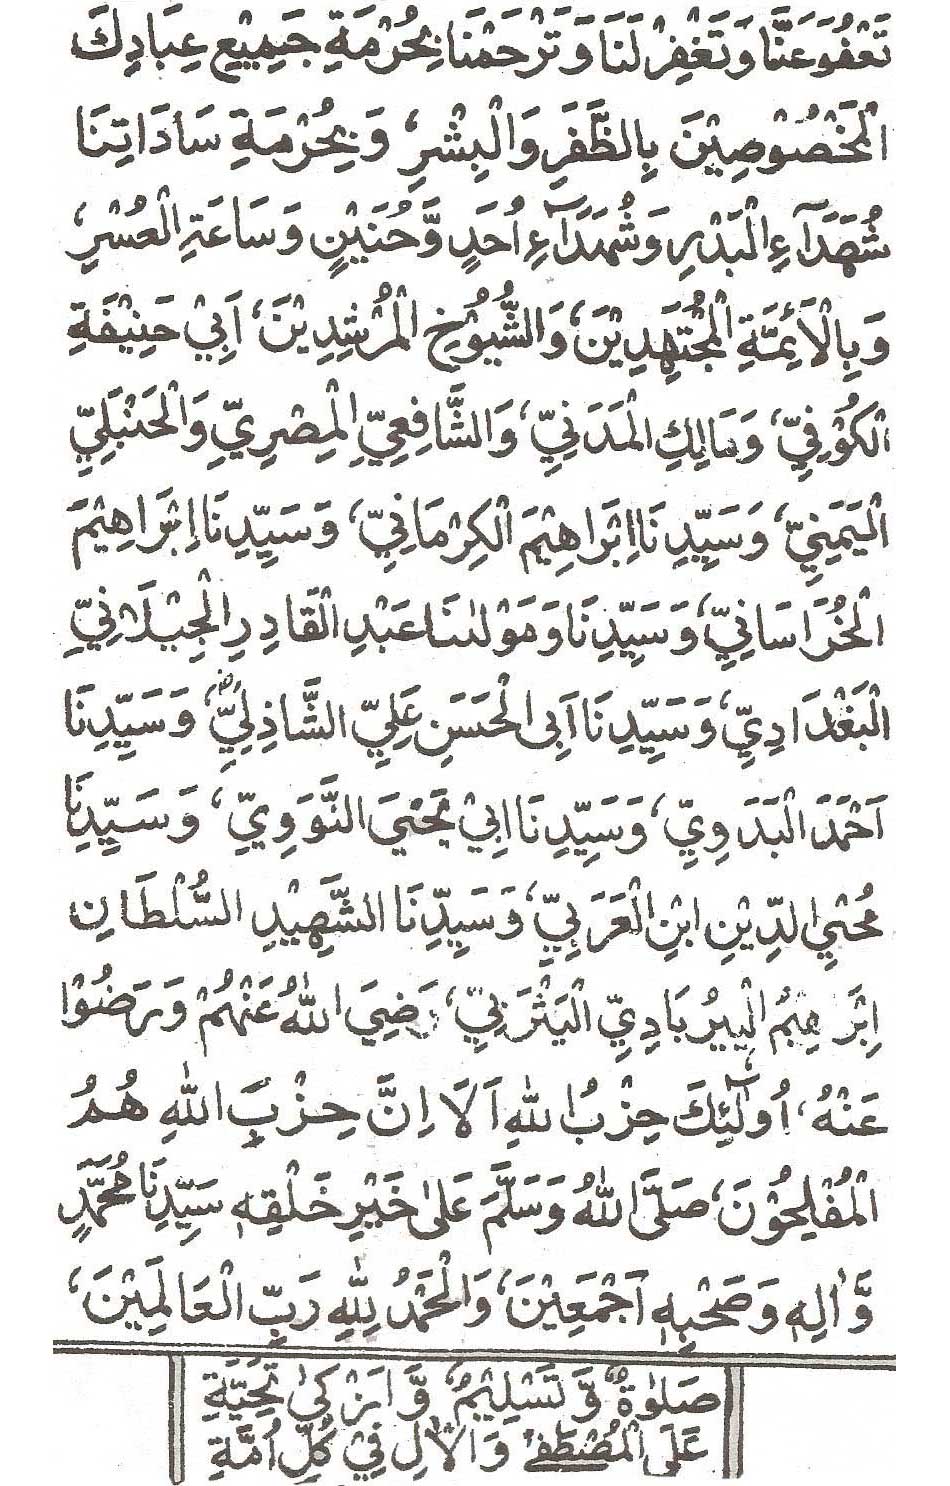 تَعْفُوَعَنَّا وَتَغْفِرْلَنَا وَتَرْحَمْنَا بِحُرْمَةِ جَمِيْعِ عِبَادِكَ
الْمَخْصُوْصِيْنَ بِالظَّفَرِ وَالْبِشْرِ، وَبِحُرْمَةِ سَادَاتِنَا
شُهَدَآءِ الْبَدْرِ وَشُهَدَآءِ اُحَدٍ وَّحُنَيْنٍ وَسَاعَةِ الْعُسْرِ،
وَبِالْاَئِمَّةِ الْمُجْتَهِدِيْنَ، وَالشُّيُوْخِ الْمُرْشِدِيْنَ، اَبِيْ حَنِيْفَةِ
الْكُوْفِيِّ، وَمَالِكِ الْمَدَنِيِّ، وَالشَّافِعِيِّ الْمِصْرِيِّ وَالْحَنْبَلِيِّ
الْيَمَنِيِّ، وَسَيِّدِنَا اِبْرَاهِيْمَ الْكِرْمَانِيِّ، وَسَيِّدِنَا اِبْرَاهِيْمَ
الْخُرَاسَانِيِّ، وَسَيِّدِنَا وَمَوْلٰىنَا عَبْدِ الْقَادِرِ الْجِيْلَانِيِّ
الْبَغْدَادِيِّ، وَسَيِّدِنَا اَبِى الْحَسَنِ عَلِيِّ الشَّاذِلِيِّ، وَسَيِّدِنَا
اَحْمَدَ الْبَدَوِيِّ، وَسَيِّدِنَا اَبِيْ يَحْيَ النَّوَوِيِّ، وَسَيِّدِنَا
مُحْيِي الدِّيْنِ ابْنِ الْعَرَبِيِّ، وَسَيِّدِنَا الشَّهِيْدِ السُّلْطَانِ
اِبْرٰهِيْمُ الْيِيْرُبَادِيِّ الْيَثْرَبِيِّ، رَضِيَ اللّٰهُ عَنْهُمْ وَرَضُوْا
عَنْهُ، اُولٰٓئِكَ حِزْبُ اللّٰهِ اَلَا اِنَّ حِزْبَ اللّٰهِ هُمُ
الْمُفْلِحُوْنَ، صَلَّى اللّٰهُ وَسَلَّمَ عَلٰى خَيْرِ خَلْقِهٖ سَيِّدِنَا مُحَمَّدٍ
وَّاٰلِهٖ وَصَحْبِهٖ اَجْمَعِيْنَ، وَالْحَمْدُ لِلّٰهِ رَبِّ الْعَالَمِيْنَ،
صَلٰوةٌ وَّتَسْلِيْمٌ وَّاَزْكٰى تَحِيَّةِ
عَلَى الْمُصْطَفٰى وَالْاٰلِ فِيْ كُلِّ اُمَّةِ